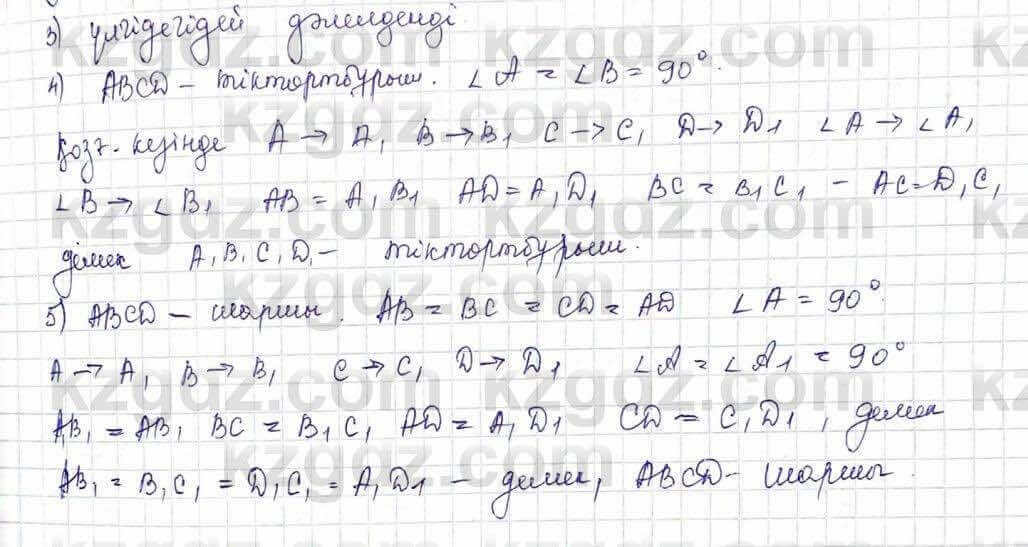 3) үлгідегідей дәлелденді.
4) ABCD – тіктөртбұрыш. ∠A = ∠B = 90°.
қозғ. кезінде A → A₁ B → B₁ C → C₁ D → D₁ ∠A → ∠A₁
∠B → ∠B₁ AB = A₁B₁ AD = A₁D₁ BC = B₁C₁ – AC = D₁C₁
демек A₁B₁C₁D₁ – тіктөртбұрыш.
5) ABCD – шаршы. AB = BC = CD = AD ∠A = 90°.
A → A₁ B → B₁ C → C₁ D → D₁ ∠A = ∠A₁ = 90°
AB₁ = AB₁ BC = B₁C₁ AD = A₁D₁ CD = C₁D₁, демек
AB₁ = B₁C₁ = D₁C₁ = A₁D₁ – демек, ABCD – шаршы.
kzgdz.com